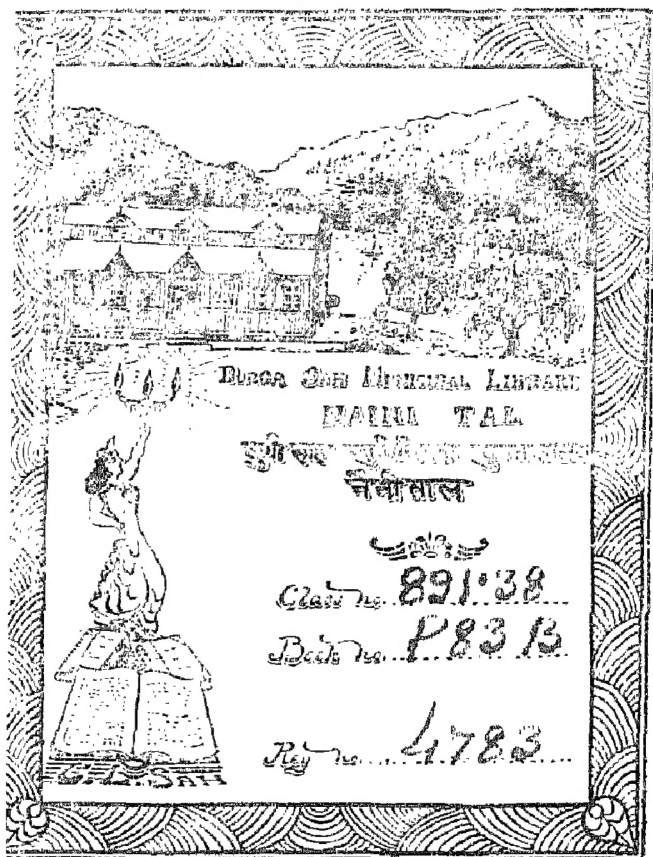 DURGA SAH MUNICIPAL LIBRARY
NAINI TAL
दुर्गा साह
नैनीताल
Class no. 891.38
Book no. P 83 B
Reg no. 4783
SAH